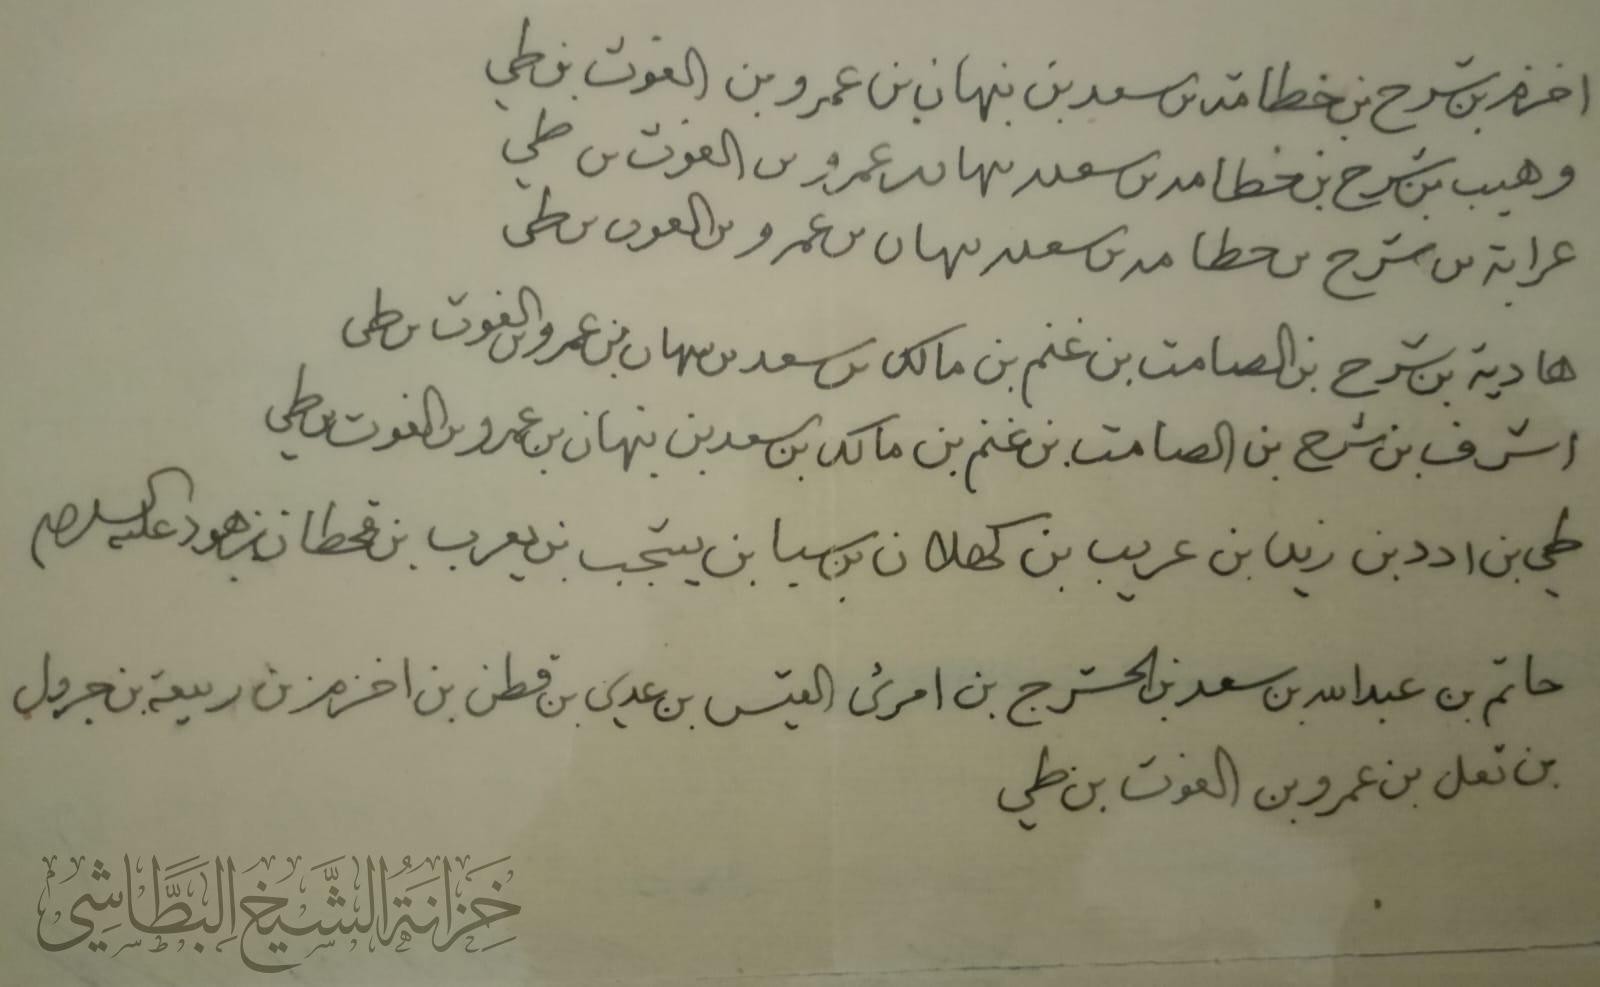 اخزم بن شرح بن خطامة بن سعد بن نبهان بن عمرو بن الغوث بن طي
وهيب بن شرح بن خطامه بن سعد بن نبهان بن عمرو بن الغوث بن طي
عرابة بن شرح بن خطامه بن سعد بن نبهان بن عمرو بن الغوث بن طي
هادية بن شرح بن الصامت بن غنم بن مالك بن سعد بن نبهان بن عمرو بن الغوث بن طي
اشرف بن شرح بن الصامت بن غنم بن مالك بن سعد بن نبهان بن عمرو بن الغوث بن طي
طي بن ادد بن زيد بن عريب بن كهلان بن سبا بن يشجب بن يعرب بن قحطان بن هود عليه السلام
حاتم بن عبدالله بن سعد بن الحشرج بن امرئ القيس بن عدي بن قطن بن اخزم بن ربيعة بن جرول
بن ثعل بن عمرو بن الغوث بن طي
خِزَانَةُ الشَّيْخِ البَطَّاشِي